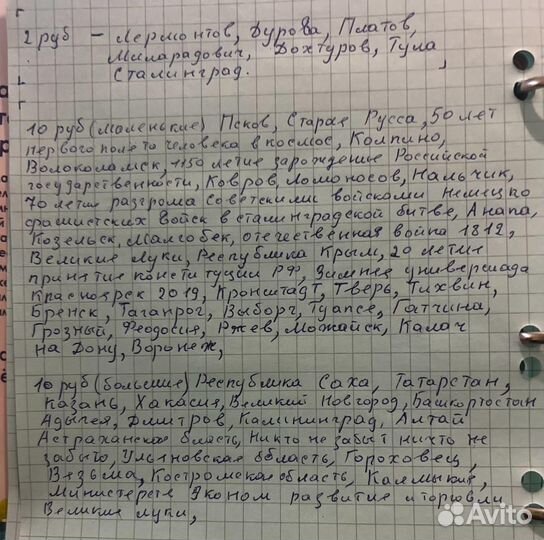 2 руб - Лермонтов, Дурова, Платов,
Миларадович, Дохтуров, Тула,
Сталинград.
10 руб (маленькие) Псков, Старая Русса, 50 лет
первого полета человека в космос, Колпино,
Волоколамск, 1150 летие зарождение Российской
государственности, Ковров, Ломоносов, Нальчик,
70 летие разгрома советскими войсками немецко
фашистских войск в сталинградской битве, Анапа,
Козельск, Малгобек, отечественная война 1812,
Великие луки, Республика Крым, 20 летие
принятие конституции РФ, Зимняя универсиада
Красноярск 2019, Кронштадт, Тверь, Тихвин,
Бренск, Таганрог, Выборг, Туапсе, Гатчина,
Грозный, Феодосия, Ржев, Можайск, Калач
на Дону, Воронеж,
10 руб (большие) Республика Саха, Татарстан,
Казань, Хакасия, Великий Новгород, Башкортостан
Адыгея, Дмитров, Калининград, Алтай
Астраханская область, Никто не забыт ничто не
забыто, Ульяновская область, Гороховец,
Вязьма, Костромская область, Калмыкия,
Министерств Эконом развитие и торговли
Великие луки,
Avito